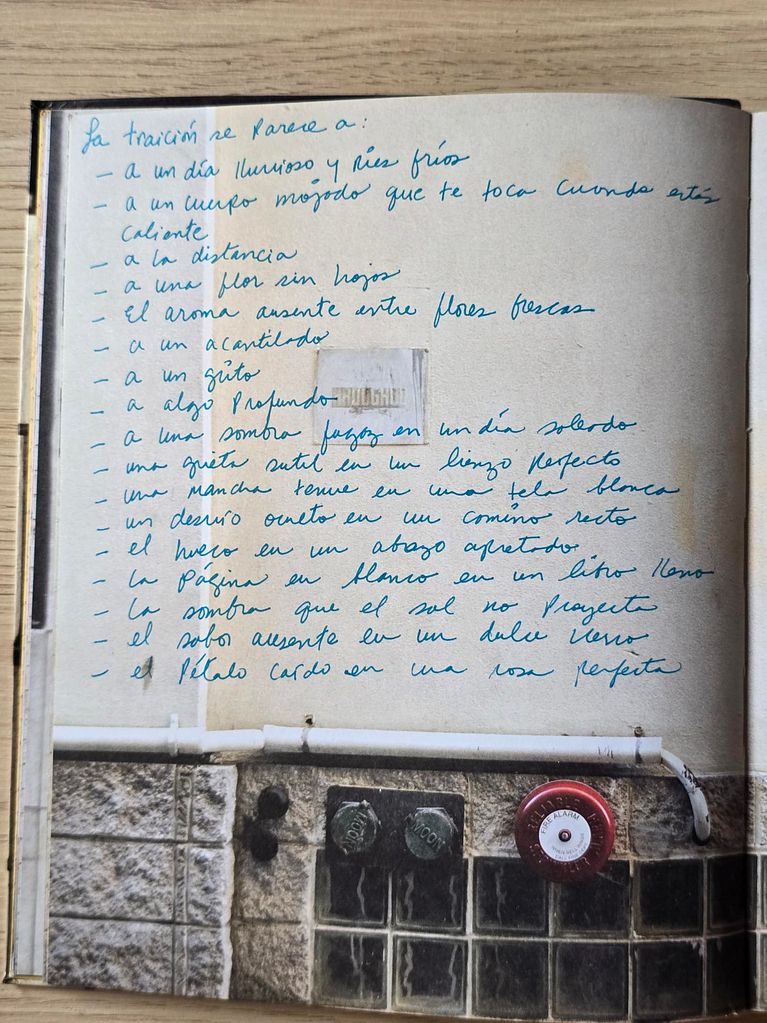 La traición se parece a:
- a un día lluvioso y pies fríos
- a un cuerpo mojado que te toca cuando estás
caliente
- a la distancia
- a una flor sin hojas
- El aroma ausente entre flores frescas
- a un acantilado
- a un grito
- a algo profundo
- a una sombra fugaz en un día soleado
- una grieta sutil en un lienzo perfecto
- una mancha tenue en una tela blanca
- un desvío oculto en un camino recto
- el hueco en un abrazo apretado
- la página en blanco en un libro lleno
- la sombra que el sol no proyecta
- el sabor ausente en un dulce
- el pétalo caído en una rosa perfecta
FIRE ALARM